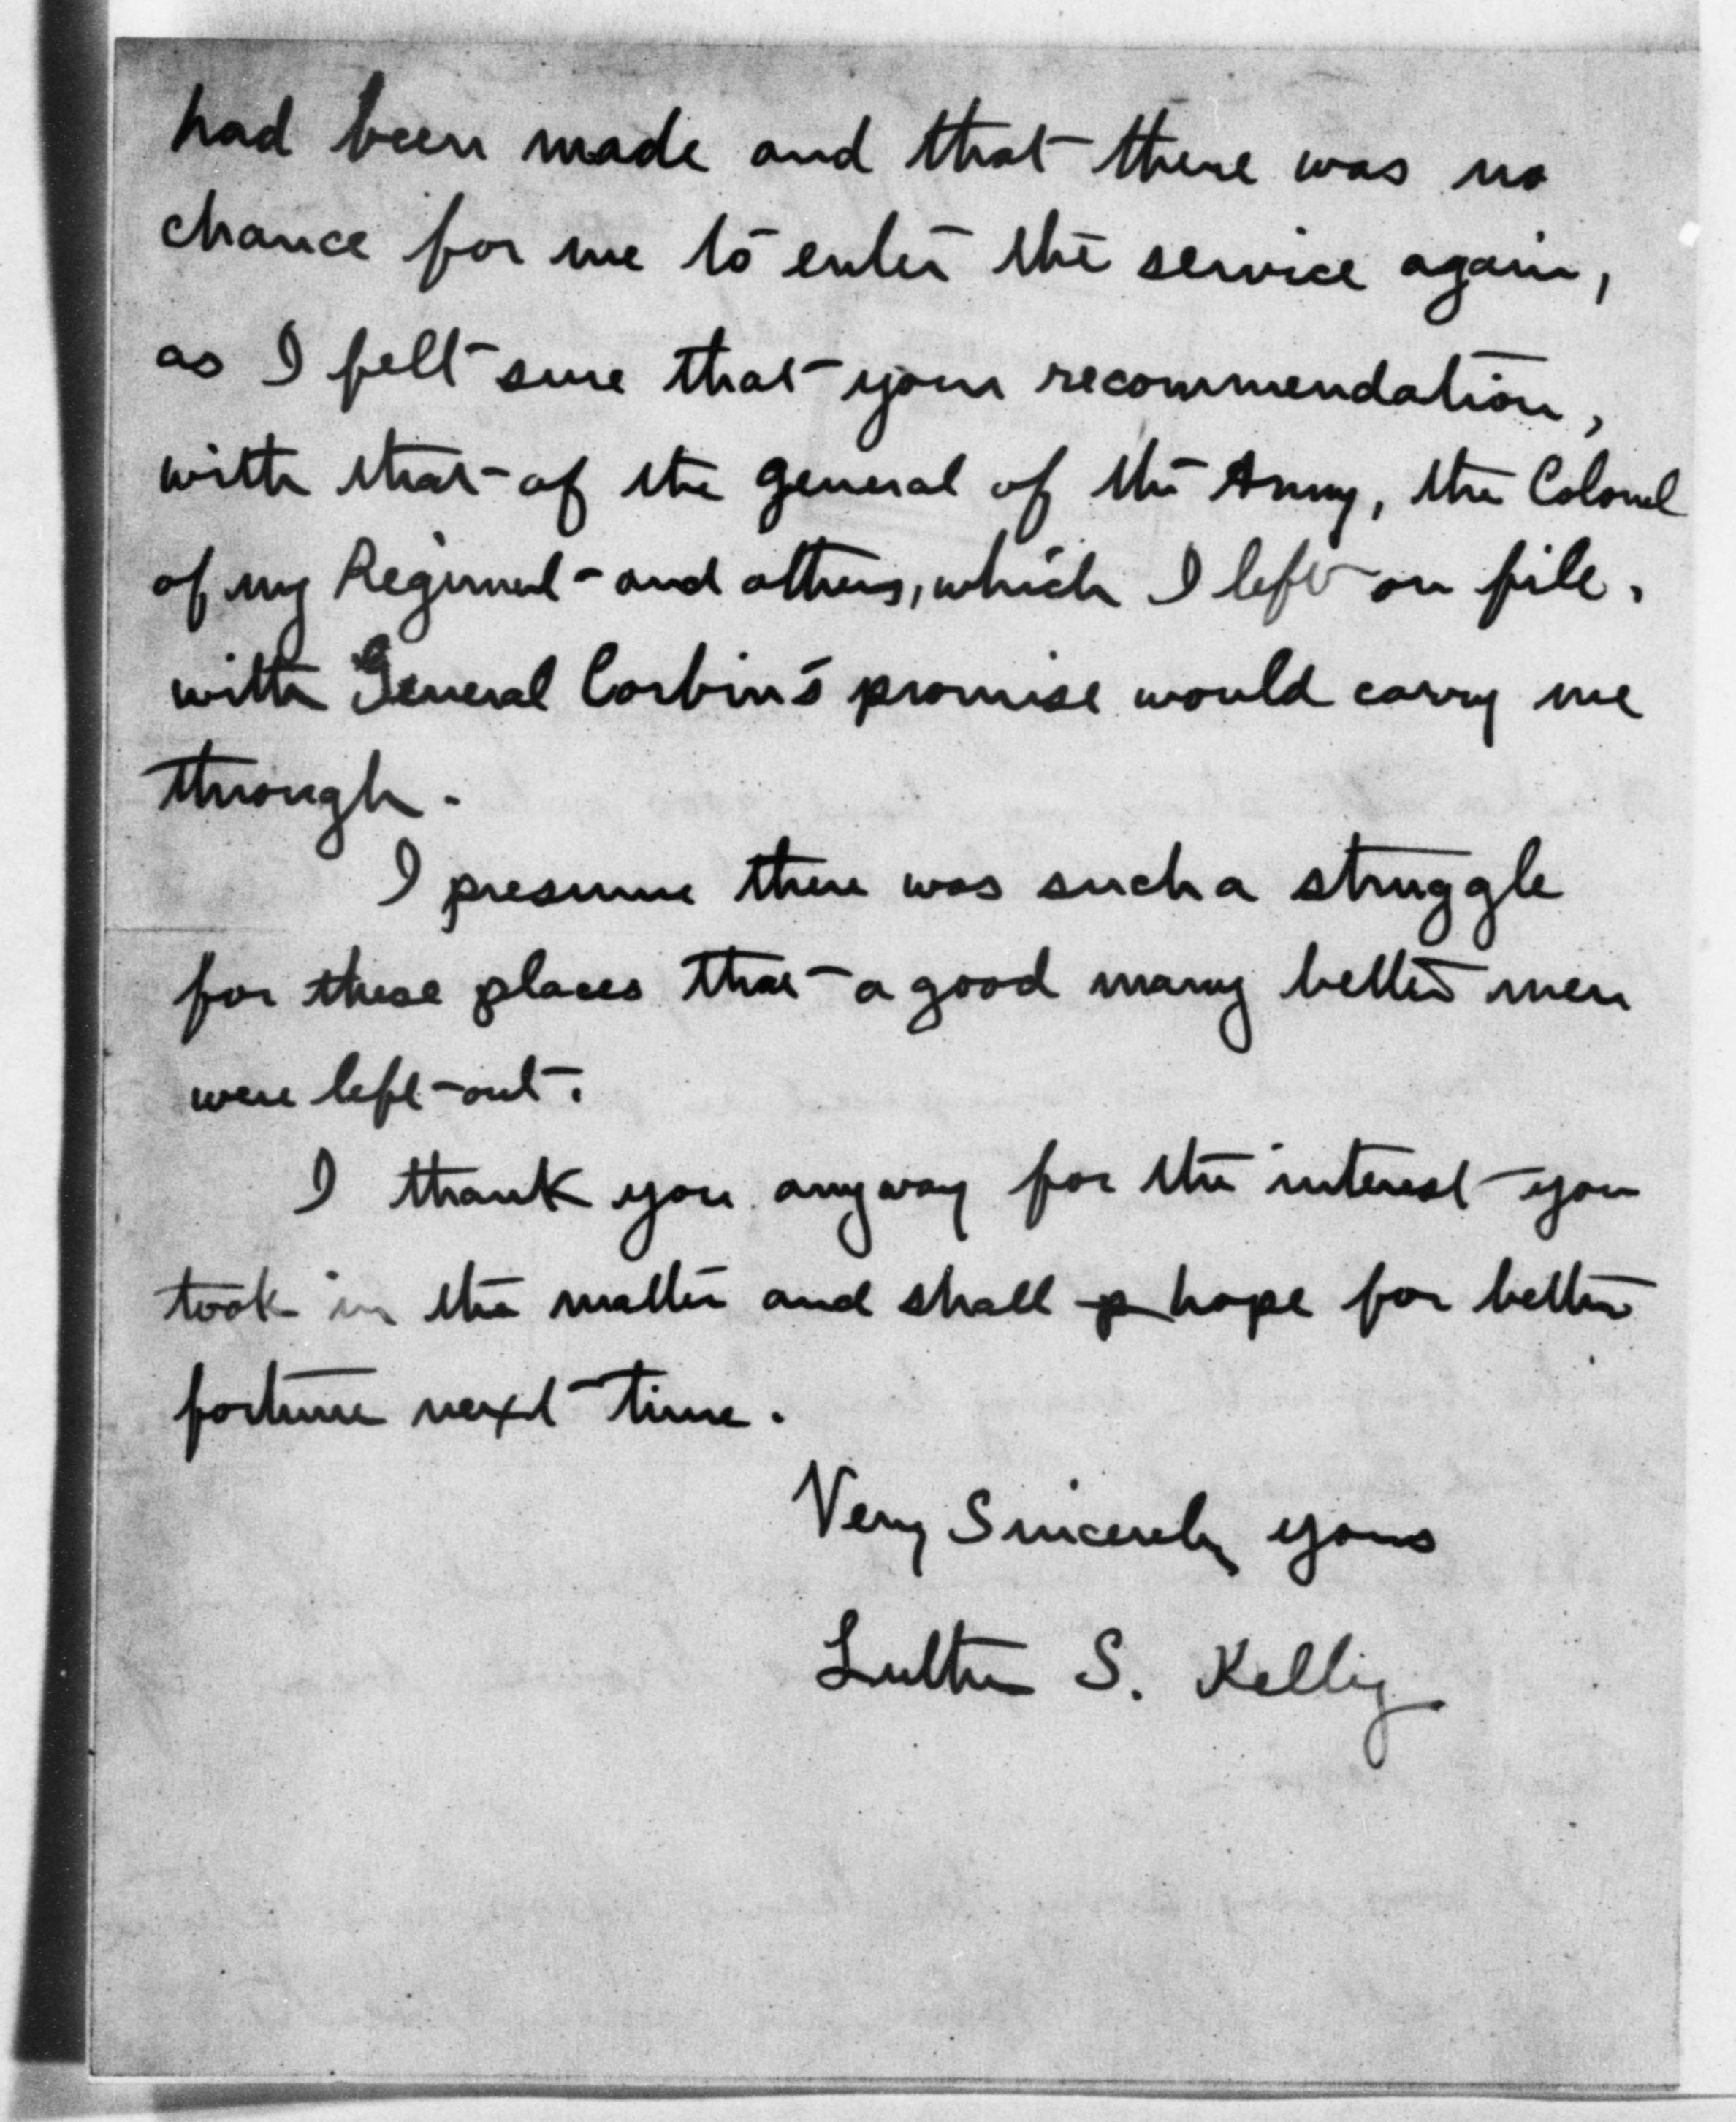 had been made and that there was no
chance for me to enter the service again,
as I felt sure that your recommendation,
with that of the General of the Army, the Colonel
of my Regiment and others, which I left on file,
with General Corbin's promise would carry me
through.
I presume there was such a struggle
for these places that a good many better men
were left out.
I thank you anyway for the interest you
took in the matter and shall p hope for better
fortune next time.
Very Sincerely yours
Luther S. Kelly